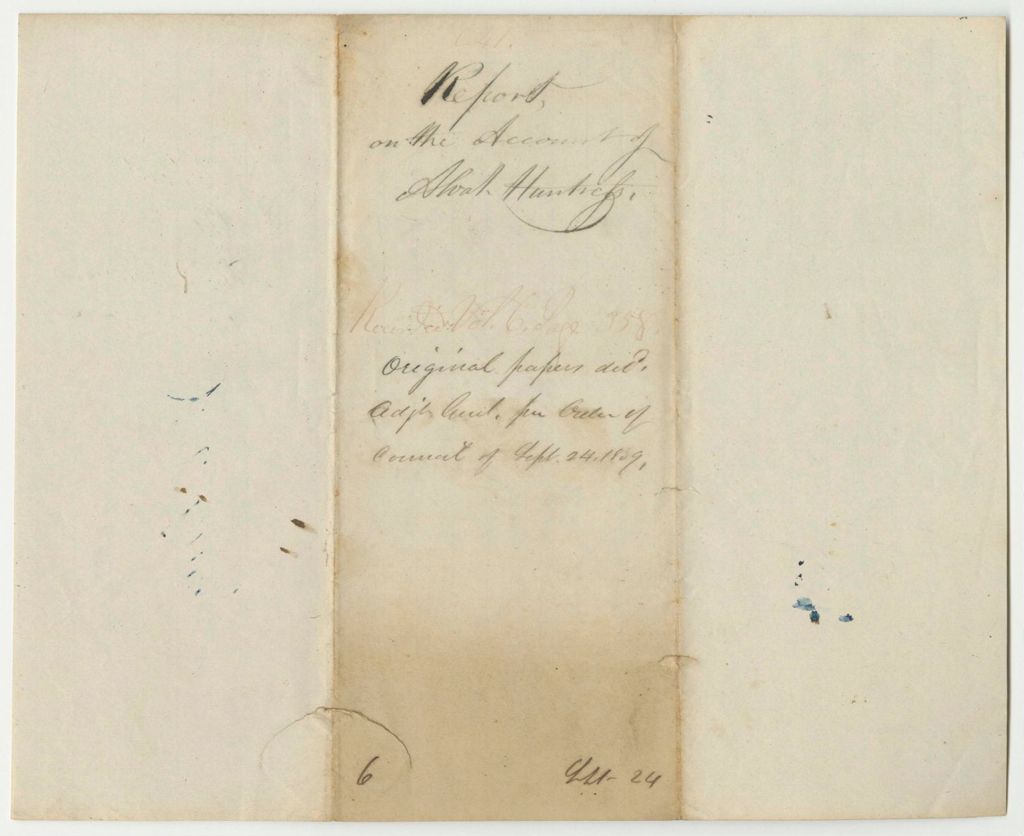 641.
Report,
on the Account of
Alvah Huntress.
Recorded Vol. 6. Page 358.
Original papers deld.
Adjt. Genl. per Order of
Council of Sept. 24. 1839,
6
Sept 24